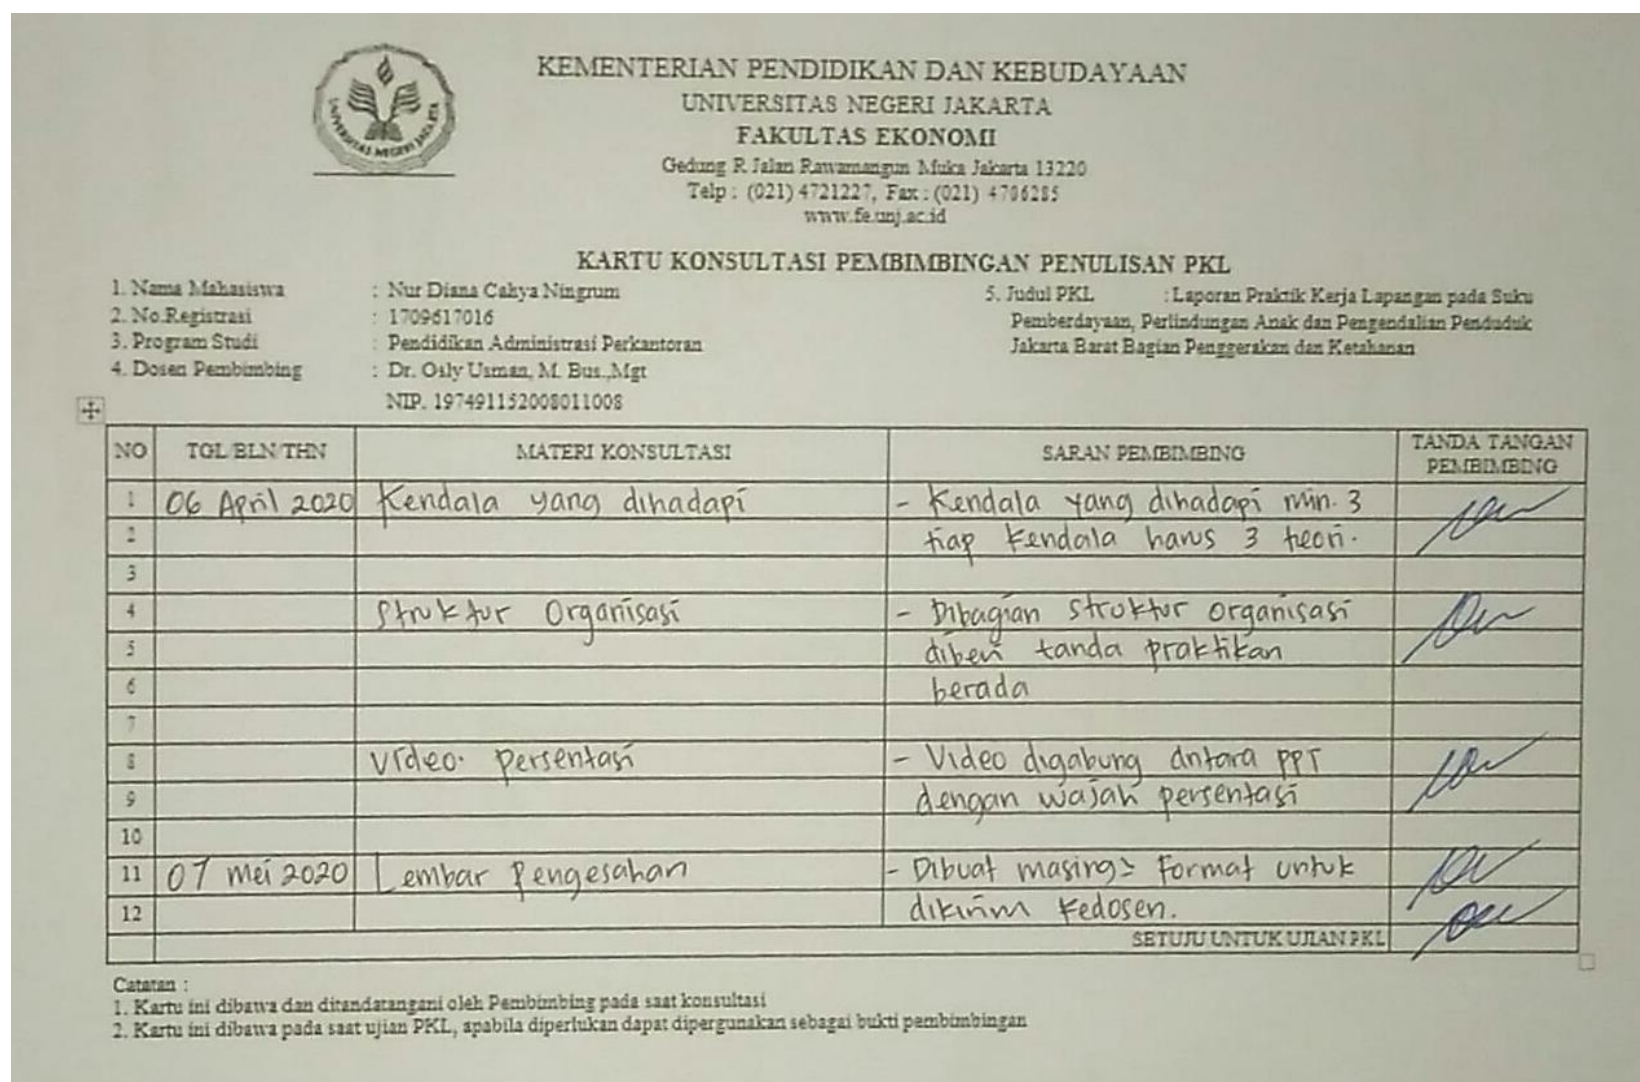 UNIVERSITAS NEGERI JAKARTA
KEMENTERIAN PENDIDIKAN DAN KEBUDAYAAN
UNIVERSITAS NEGERI JAKARTA
FAKULTAS EKONOMI
Gedung R Jalan Rawamangun Muka Jakarta 13220
Telp : (021) 4721227, Fax : (021) 4706285
www.fe.unj.ac.id
KARTU KONSULTASI PEMBIMBINGAN PENULISAN PKL
1. Nama Mahasiswa : Nur Diana Cahya Ningrum
2. No.Registrasi : 1709617016
3. Program Studi : Pendidikan Administrasi Perkantoran
4. Dosen Pembimbing : Dr. Osly Usman, M. Bus.,Mgt
NIP. 197491152008011008
5. Judul PKL : Laporan Praktik Kerja Lapangan pada Suku
Pemberdayaan, Perlindungan Anak dan Pengendalian Penduduk
Jakarta Barat Bagian Penggerakan dan Ketahanan
NO TGL/BLN/THN MATERI KONSULTASI SARAN PEMBIMBING TANDA TANGAN PEMBIMBING
1 06 April 2020 Kendala yang dihadapi - Kendala yang dihadapi min. 3
2 tiap kendala harus 3 teori.
3
4 Struktur Organisasi - Dibagian struktur organisasi
5 diberi tanda praktikan
6 berada
7
8 Video. Persentasi - Video digabung antara PPT
9 dengan wajah persentasi
10
11 07 Mei 2020 Lembar Pengesahan - Dibuat masing2 Format untuk
12 dikirim kedosen.
SETUJU UNTUK UJIAN PKL
Catatan :
1. Kartu ini dibawa dan ditandatangani oleh Pembimbing pada saat konsultasi
2. Kartu ini dibawa pada saat ujian PKL, apabila diperlukan dapat dipergunakan sebagai bukti pembimbingan